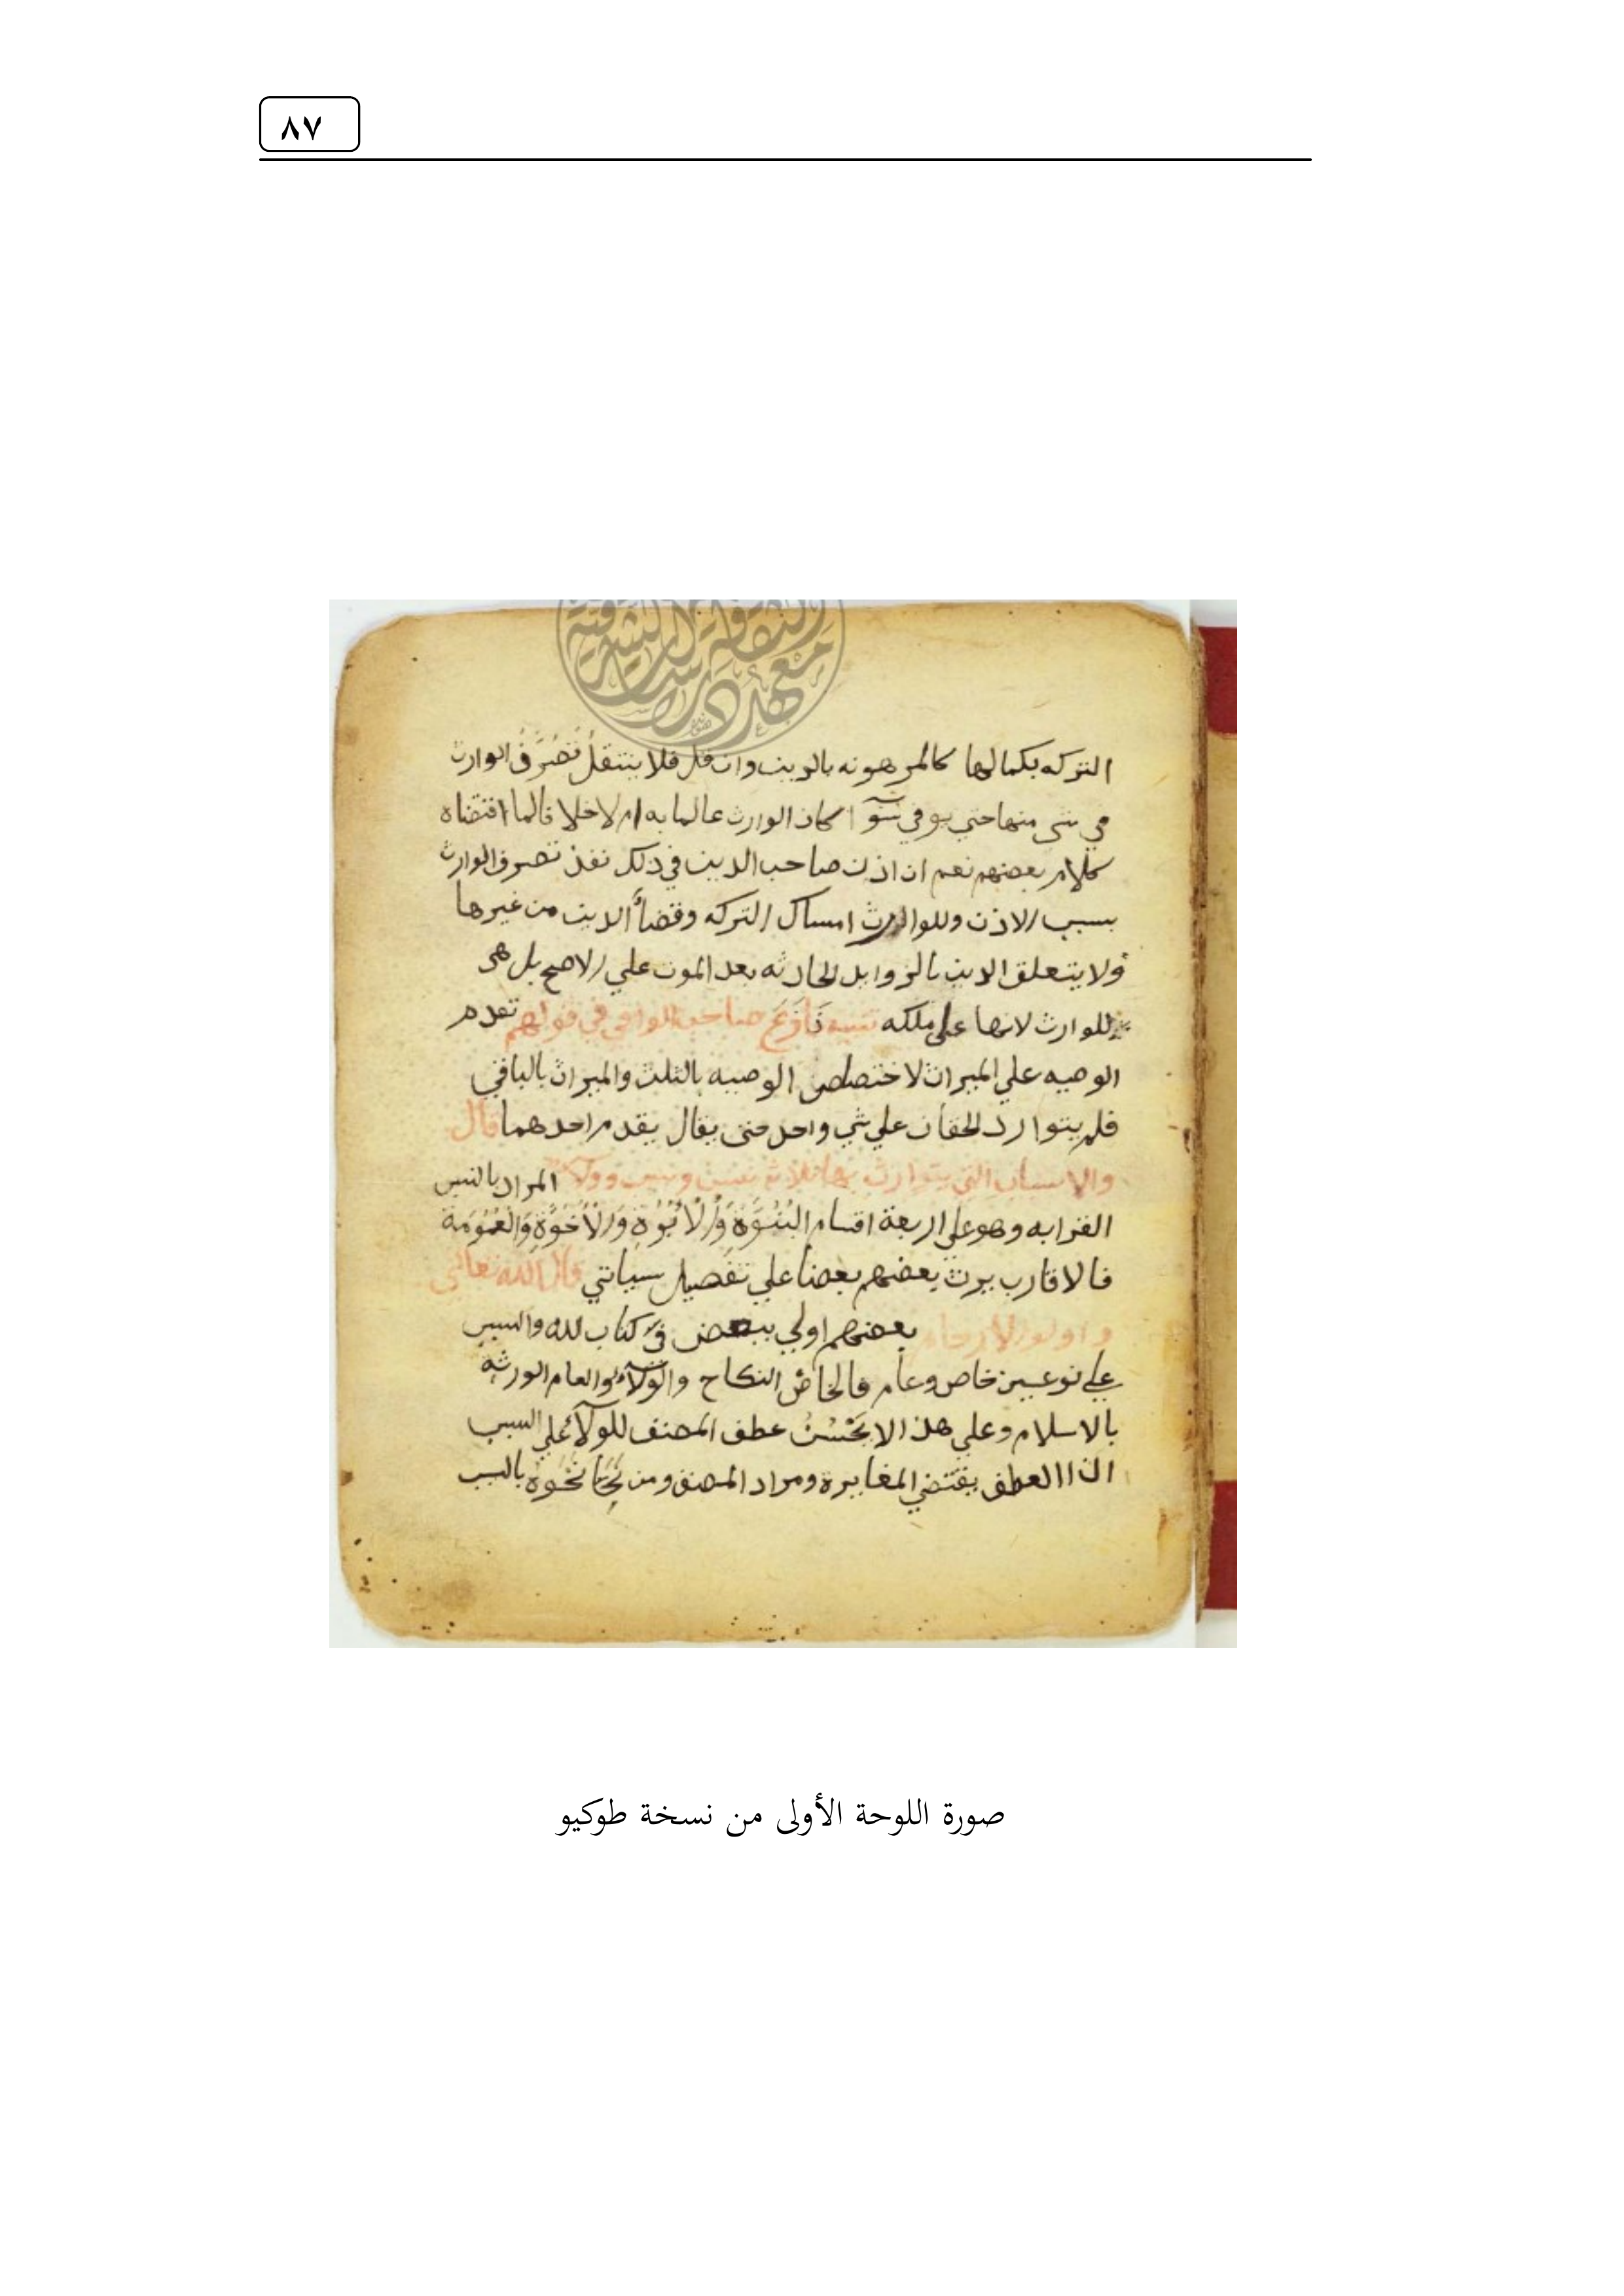 ٨٧
معهد دراسات الثقافة الشرقية
التركه بكمالها كالمرهونه بالدين وان قل فلا ينتقل تصرف الوارث
في شي منها حتي يوفي سوآ اكان الوارث عالما به ام لا خلا فالما اقتضاه
كلام بعضهم نعم ان اذن صاحب الدين في ذلك نفذ تصرف الوارث
بسبب الاذن وللوارث امساك التركه وقضآ الدين من غيرها
ولا يتعلق الدين بالزوايد الحادثه بعد الموت علي الاصح بل هي
للوارث لانها علي ملكه تنبيه نازع صاحب الوافي في قولهم تقدم
الوصيه علي الميراث لاختصاص الوصيه بالثلث والميراث بالباقي
فلم يتوارد الحقان علي شي واحد حتى يقال يقدم احدهما قال
والاسباب التي يتوارث بها ثلاثة نسب وسبب وولآ المراد بالنسب
القرابه وهو علي اربعة اقسام البُنُوَّة وَالاُبُوَّة وَالاُخُوَّة وَالعُمُومَة
فالاقارب يرث بعضهم بعضا علي تفصيل سياتي قال الله تعالى
واولو الارحام بعضهم اولي ببعض في كتاب الله والسبب
علي نوعين خاص وعام فالخاص النكاح والولآ والعام الورثه
بالاسلام وعلي هذا لا يَحْسُنُ عطف المصنف للولآ علي السبب
اذ العطف يقتضي المغايرة ومراد المصنف ومن نَحَا نَحْوَه بالسبب
صورة اللوحة الأولى من نسخة طوكيو